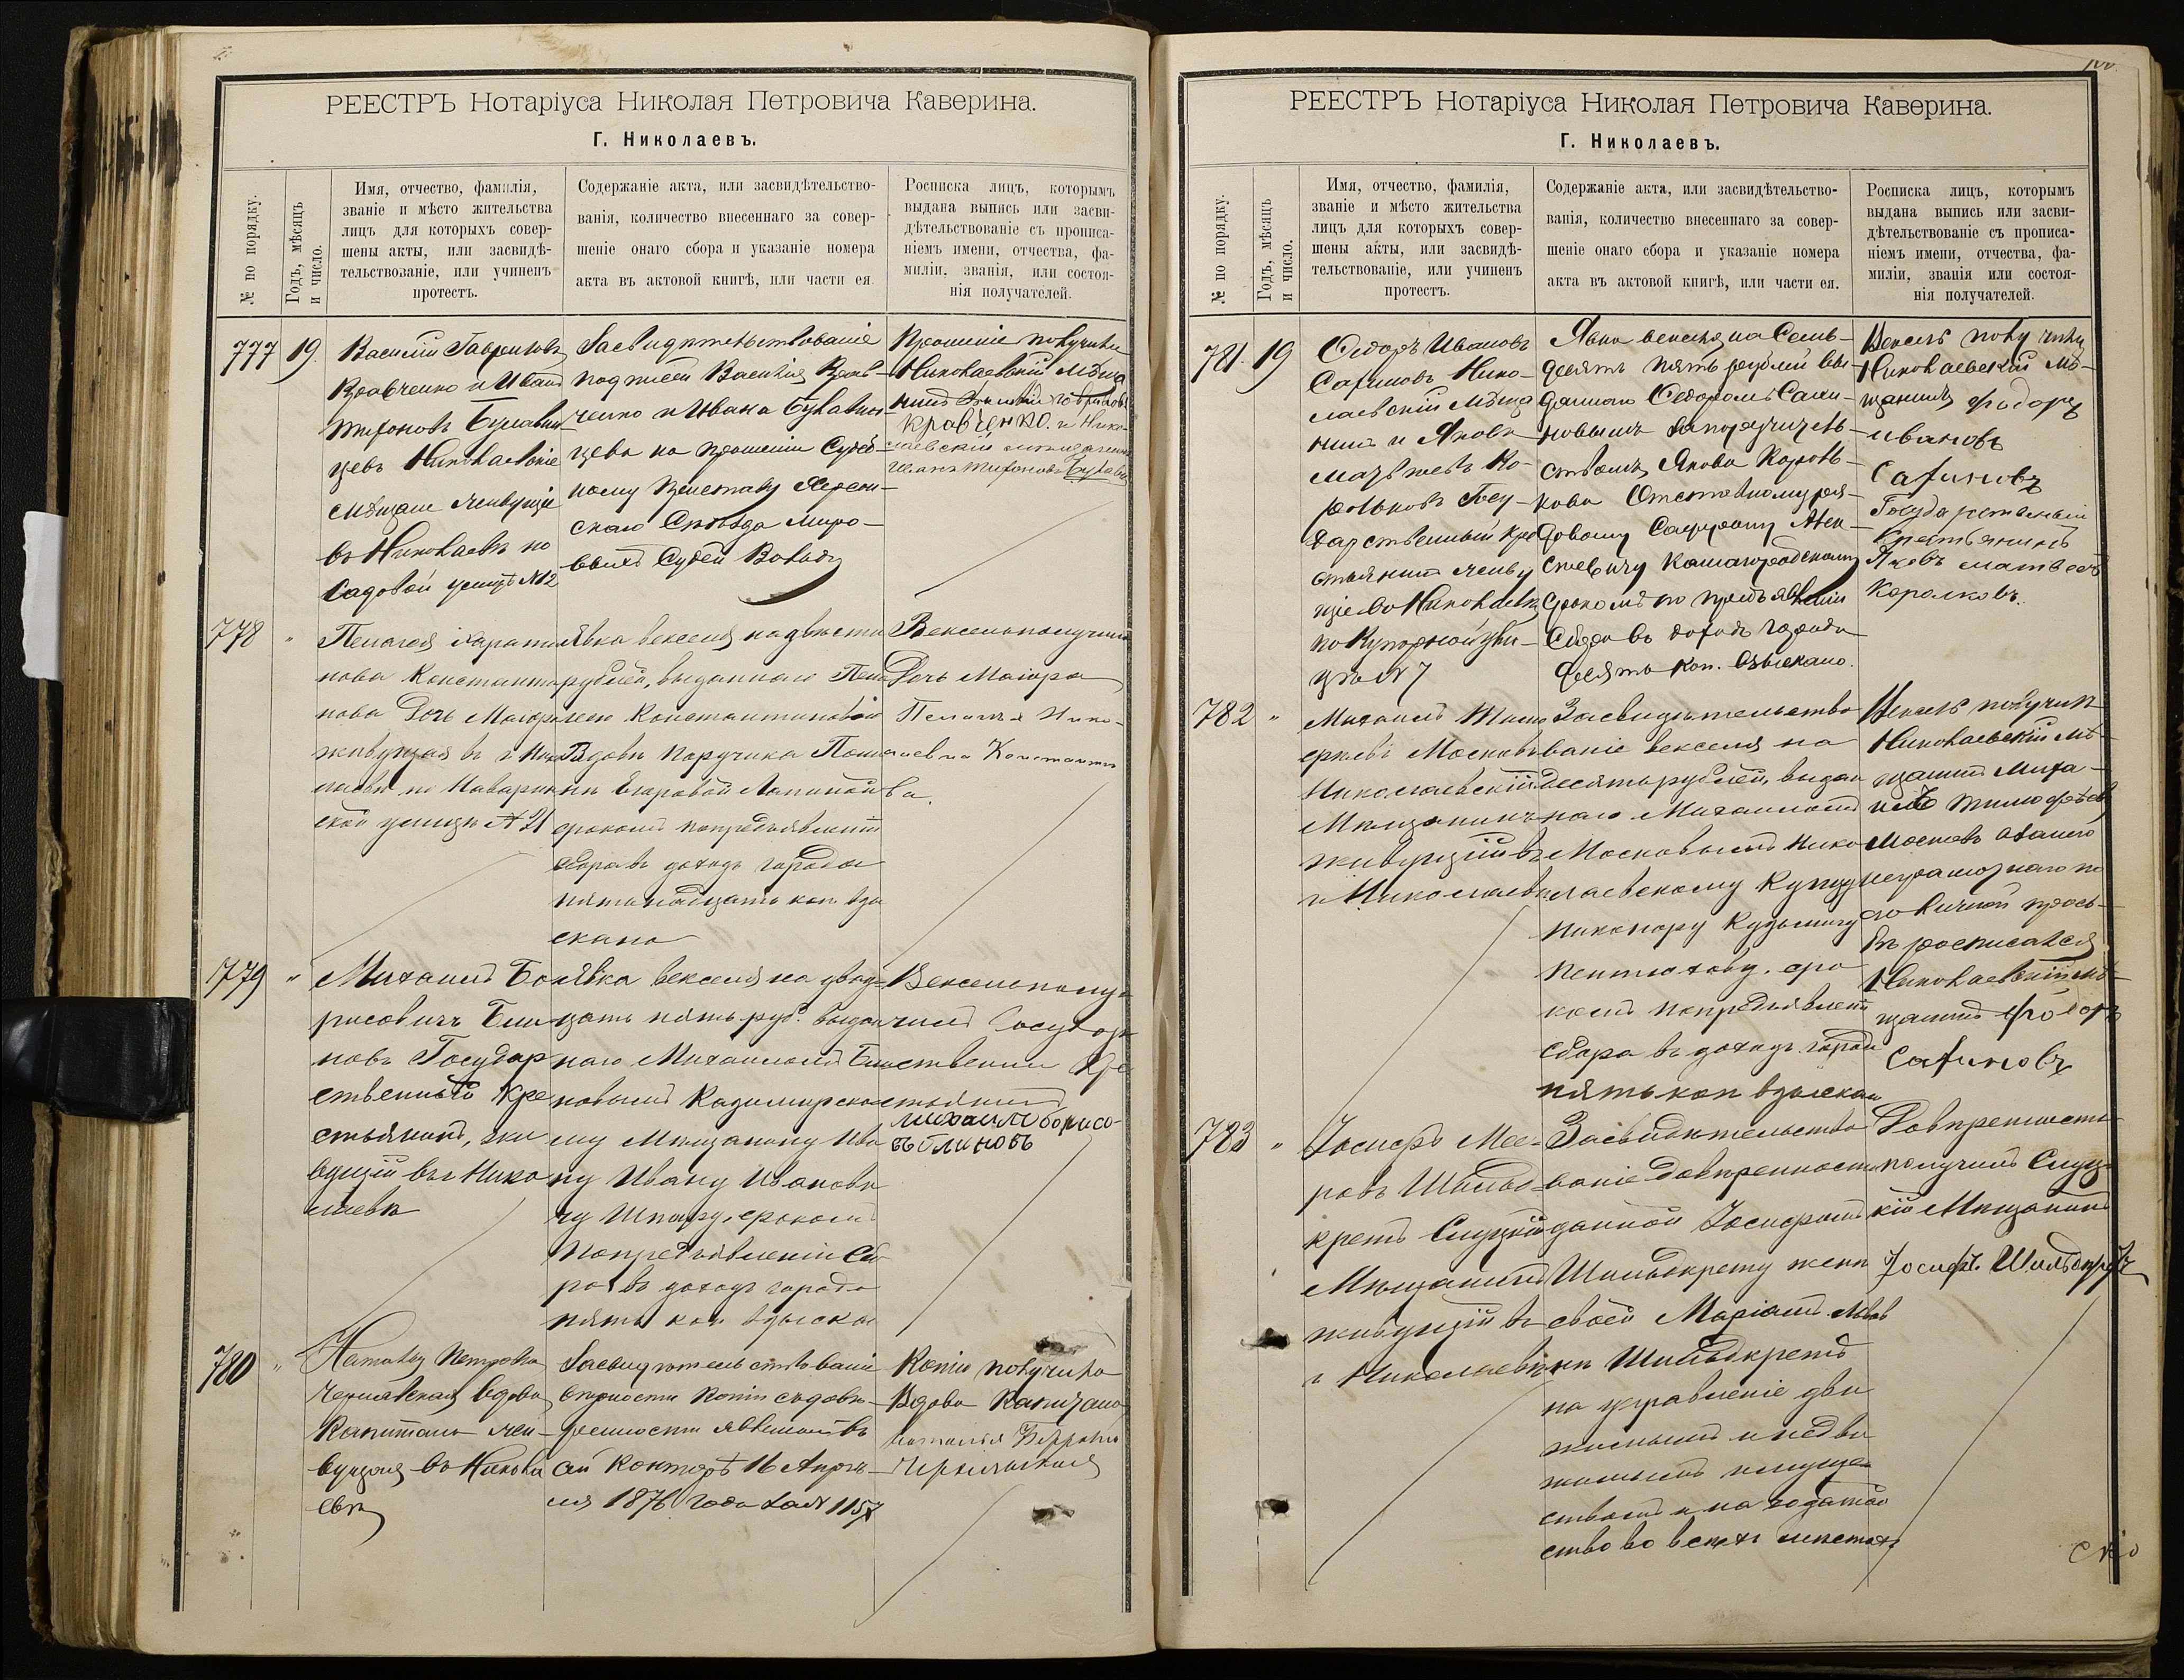 РЕЕСТРЪ Нотаріуса Николая Петровича Каверина.
Г. Николаевъ.
№ по порядку.
Годъ, мѣсяцъ
и число.
Имя, отчество, фамилія,
званіе и мѣсто жительства
лицъ для которыхъ совер-
шены акты, или засвидѣ-
тельствованіе, или учиненъ
протестъ.
Содержаніе акта, или засвидѣтельство-
ванія, количество внесеннаго за совер-
шеніе онаго сбора и указаніе номера
акта въ актовой книгѣ, или части ея.
Росписка лицъ, которымъ
выдана выпись или засви-
дѣтельствованіе съ прописа-
ніемъ имени, отчества, фа-
миліи, званія, или состоя-
нія получателей.
777 19.
Василій Гавриловъ
Кравченко и Иванъ
Тифоновъ Булавин
цевъ Николаевскіе
Мѣщане живущіе
въ Николаевѣ по
Садовой улицѣ №12
Засвидѣтельствованіе
подписей Василія Крав-
ченко и Ивана Булавин
цева на прошеніи Судеб-
ному Приставу Херсон-
скаго Съѣзда Миро-
выхъ Судей
Прошеніе получили
Николаевскій Мѣща
нинъ Василій Гавриловъ
Кравченко. и Нико-
лаевскій мѣщанинъ
Иванъ Тифоновъ
778 "
Пелагея
нова Константи
нова Дочь Маіора
живущая въ г. Ник
лаевѣ по Наварин
ской улицѣ № 21
Явка векселя на двѣсти
рублей, выданнаго Пела
геею Константиновой
Вдовѣ Поручика
Егоровой Лапиной
срокомъ по предъявленіи
сбора въ доходъ города
пятнадцать коп взы
скано
Вексель получила
Дочь Маіора
Пелагея Нико-
лаевна Константи
ва.
779 "
Михаилъ Бо
рисовичъ Бли
новъ Государ
ственный Кре
стьянинъ, жи
вущій въ Нико
лаевѣ
Явка векселя на двад-
цать пять руб. выдан
наго Михаиломъ Бли
новымъ Кадимирско
му Мѣщанину Ива
ну Ивану Иванови
чу срокомъ
по предъявленіи Сбо
ра въ доходъ города
пять коп. взыска
Вексель полу
чилъ Государ
ственный Кре
стьянинъ
михаилъ борисо-
въ блиновъ
780 "
Наталья Петровна
Чернявская вдова
Капитана жи-
вущая въ Никола
евѣ
Засвидѣтельствованіе
вѣрности копіи съ довѣ-
ренности явленной въ
сей Конторѣ 16 Апрѣ-
ля 1876 года за № 1157
Копію получила
Вдова Капитана
Наталья Петровна
Чернявская
РЕЕСТРЪ Нотаріуса Николая Петровича Каверина.
Г. Николаевъ.
№ по порядку.
Годъ, мѣсяцъ
и число.
Имя, отчество, фамилія,
званіе и мѣсто жительства
лицъ для которыхъ совер-
шены акты, или засвидѣ-
тельствованіе, или учиненъ
протестъ.
Содержаніе акта, или засвидѣтельство-
ванія, количество внесеннаго за совер-
шеніе онаго сбора и указаніе номера
акта въ актовой книгѣ, или части ея.
Росписка лицъ, которымъ
выдана выпись или засви-
дѣтельствованіе съ прописа-
ніемъ имени, отчества, фа-
миліи, званія или состоя-
нія получателей.
781. 19
Ѳедоръ Ивановъ
Сафиновъ Нико-
лаевскій Мѣща
нинъ и Яковъ
Матвѣевъ Ко-
рольковъ Госу-
дарственный Кре
стьянинъ живу
щіе въ Николаевѣ
по Купорной ули-
цѣ № 7
Явка векселя на Семь-
десятъ пять рублей вы-
даннаго Ѳедоромъ Сафи-
новымъ за поручитель-
ствомъ Якова Король-
кова Отставному ря-
довому Алек-
сѣевичу
Срокомъ по предъявленіи
Сбора въ доходъ города
десять коп. взыскано.
Вексель получилъ
Николаевскій Мѣ-
щанинъ Ѳѣдоръ
ивановъ
Сафиновъ
Государственный
крестьянинъ
Яковъ матвеевъ
Королковъ.
782 "
Михаилъ Тимо
Московъ
Николаевскій
Мѣщанинъ
живущій въ
г Николаевѣ
Засвидѣтельство
ваніе векселя на
десять рублей, выдан
наго Михаиломъ
Московымъ Нико
лаевскому Купцу
Никанору Кузьмичу
Пентюхову. сро
комъ по предъявленіи
Сбора въ доходъ города
пять коп взыскан
Вексель получилъ
Николаевскій Мѣ-
щанинъ Миха-
илъ Тимофѣевъ
Московъ а за него
неграмотнаго по
его личной прось-
бѣ росписался
Николаевскій Мѣ-
щанинъ Ѳѣдоръ
Сафиновъ
783 "
Іосифъ Мее-
ровъ Шильд
кретъ Слуцкій
Мѣщанинъ
живущій въ
г Николаевѣ
Засвидѣтельство
ваніе довѣренности
данной Іосифомъ
Шильдкретъ женѣ
своей Маріамъ
Шильдкретъ
на управленіе дви
жимымъ и недви
жимымъ имуще
ствомъ и на ходатай
ство во всѣхъ мѣстахъ
Довѣренность
получилъ Слуц-
кій Мѣщанинъ
Іосифъ Шильдкретъ